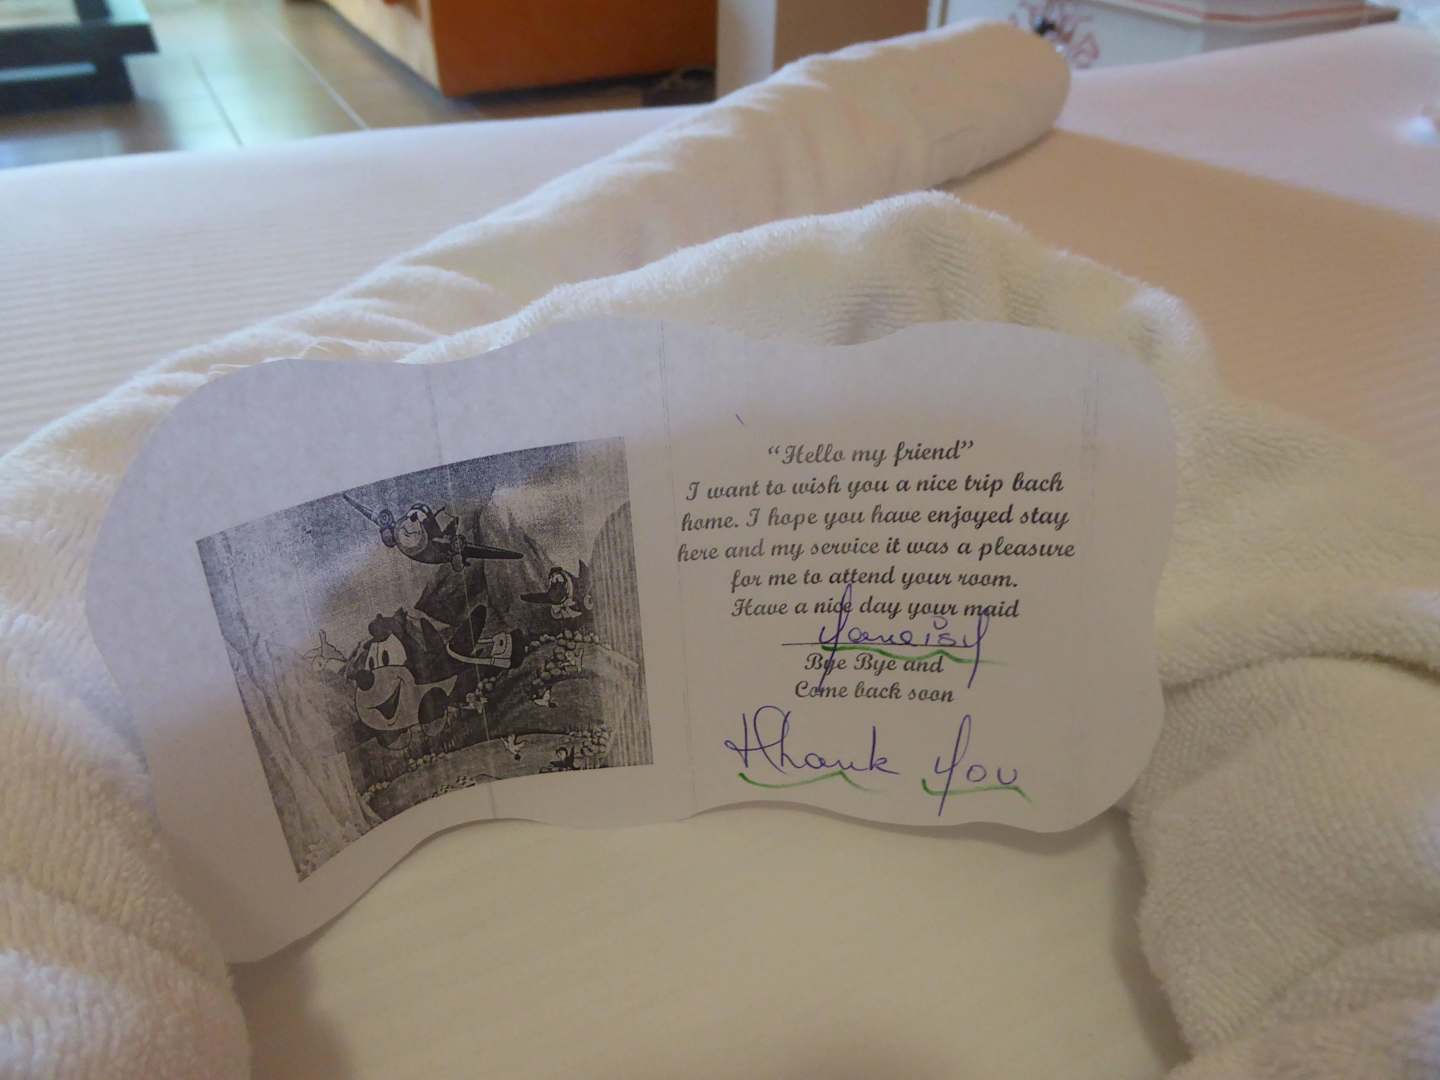 “Hello my friend”
I want to wish you a nice trip back
home. I hope you have enjoyed stay
here and my service it was a pleasure
for me to attend your room.
Have a nice day your maid
Yanaisy
Bye Bye and
Come back soon
Thank You